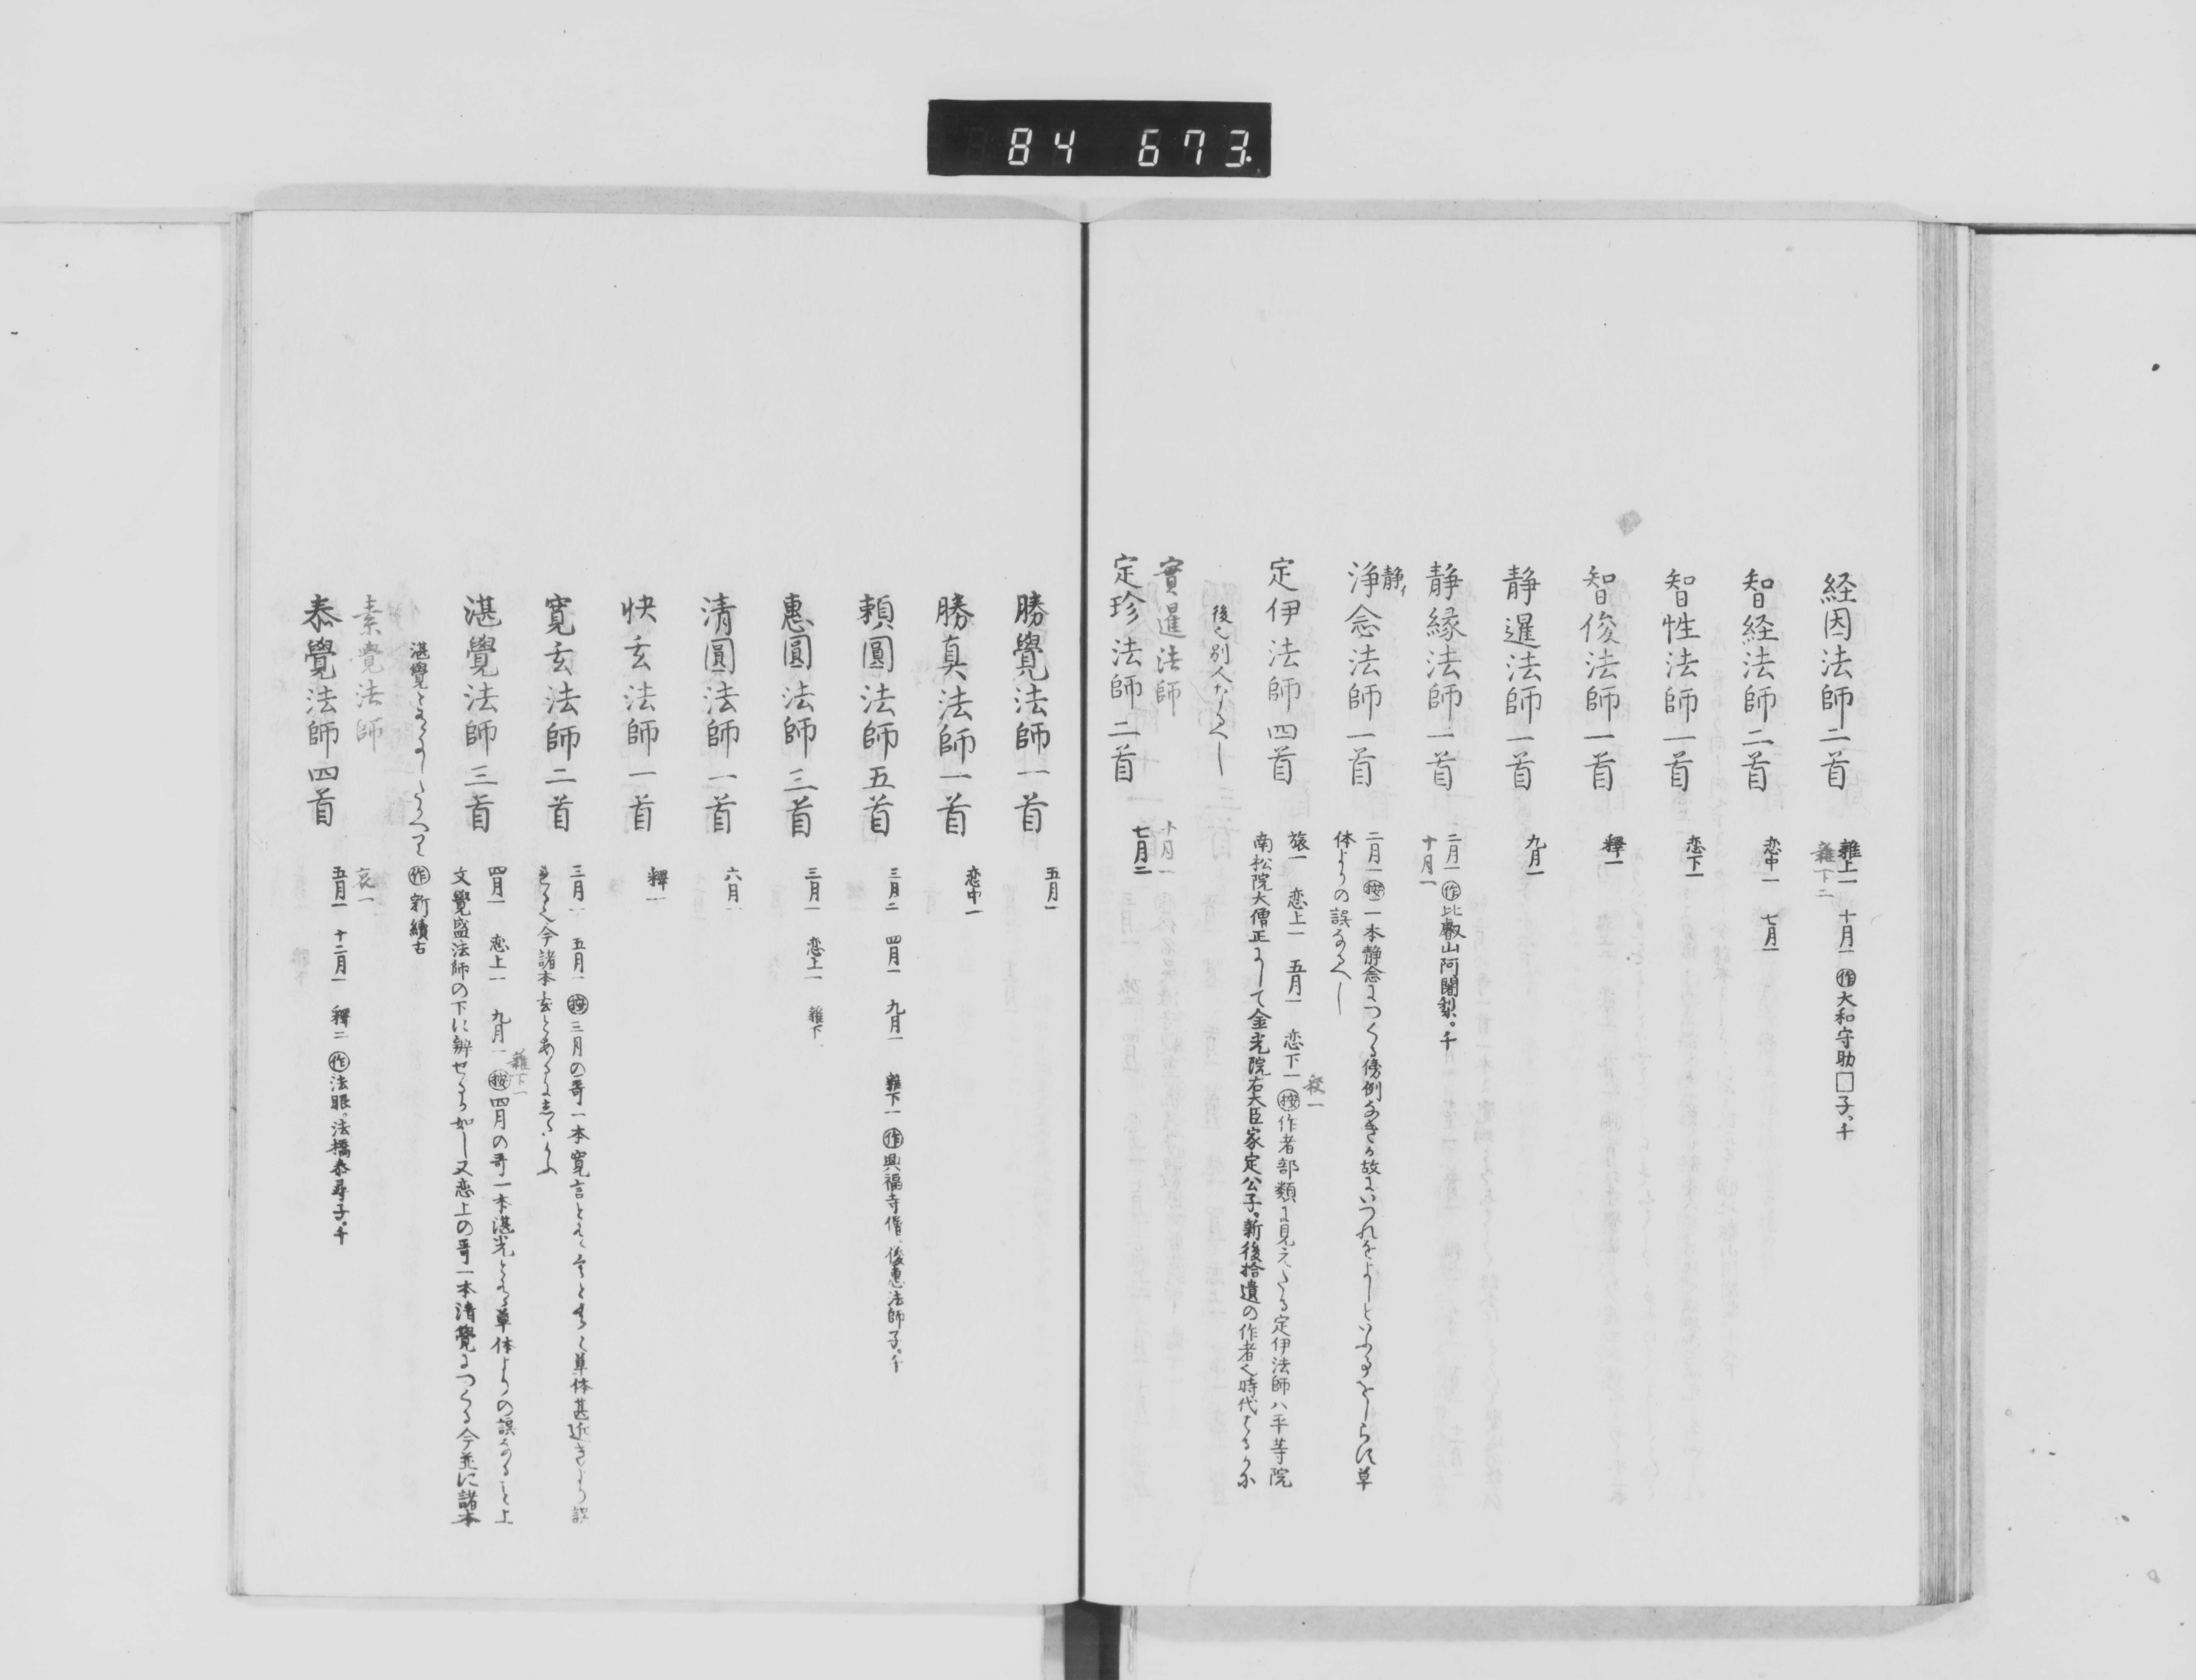 84 673
経因法師二首 雜上一 十月一 作 大和守助□子。千
雜下二
智経法師二首 恋中一 七月一
智性法師一首 恋下一
智俊法師一首 釋一
静暹法師一首 九月一
静縁法師一首 二月一 作 比叡山阿闍梨。千
十月一
静イ
浄念法師一首 二月一 按 一本静念につくる傍例なきか故にいつれをよしといふことをしらす草
体よりの誤なるへし
定伊法師四首 旅一 恋上一 五月一 恋下一 按 作者部類に見えたる定伊法師ハ平等院
釋一
南松院大僧正にして金光院右大臣家定公子。新後拾遺の作者也時代
後也別人なるへし
實暹法師 十月一
定珍法師二首 七月二
勝覺法師一首 五月一
勝真法師一首 恋中一
頼圓法師五首 三月二 四月一 九月一 雜下一 作 興福寺僧。俊惠法師子。千
惠圓法師三首 三月一 恋上一 雜下
清圓法師一首 六月一
快玄法師一首 釋一
寛玄法師二首 三月一 五月一 按 三月の哥一本寛言と
今諸本玄とあるに
湛覺法師三首 四月一 恋上一 九月一 按 四月の哥一本湛光と 草体よりの誤なること上
雜下一
文覺盛法師の下に辨せるか如し又恋上の哥一本清覺につくる今並に諸本
湛覺と 作 新續古
素覺法師 哀一
泰覺法師四首 五月一 十二月一 釋二 作 法眼。法橋泰尋子。千